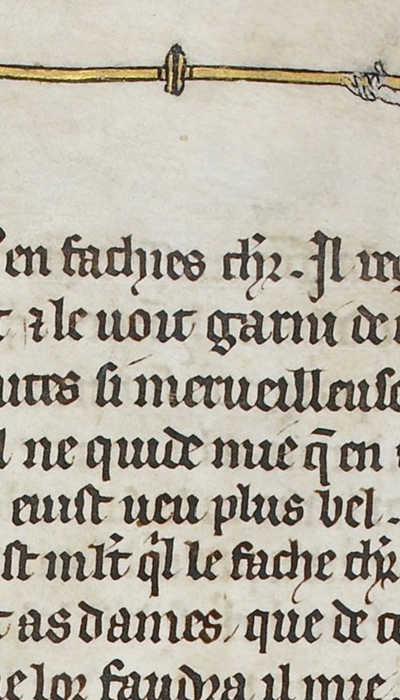 en fachies chr̃. Il reg
⁊ le uoit garni de
utes si merueilleuse
ne quide mie q̃ en
euist ueu plus bel.
st mlt̃ q̃l le fache chr̃
t as dames, que de ce
e lor faudra il mie